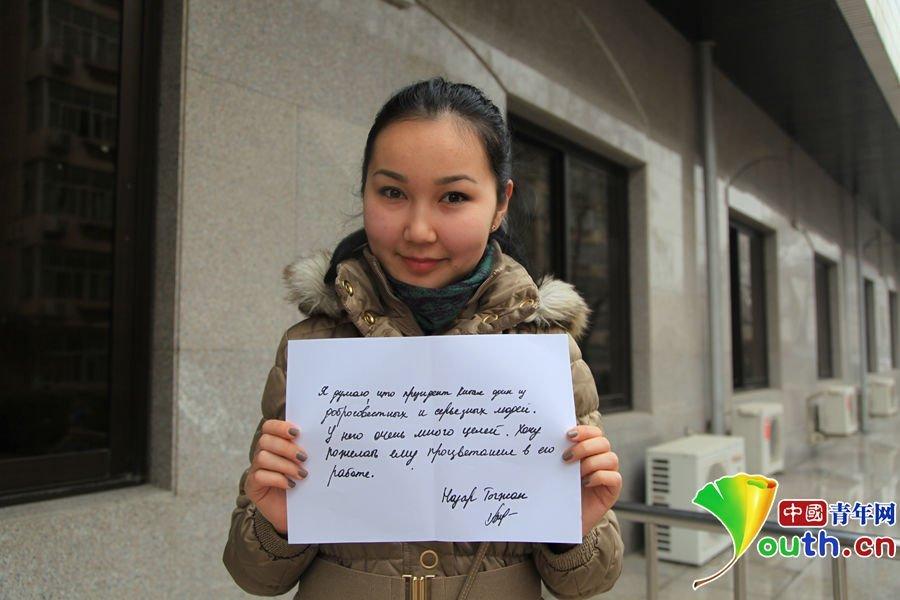 Я думаю, что президент Китая один из
добросовестных и серьезных людей.
У него очень много целей. Хочу
пожелать ему процветания в его
работе.
Назар Тогжан
中国青年网
Youth.cn